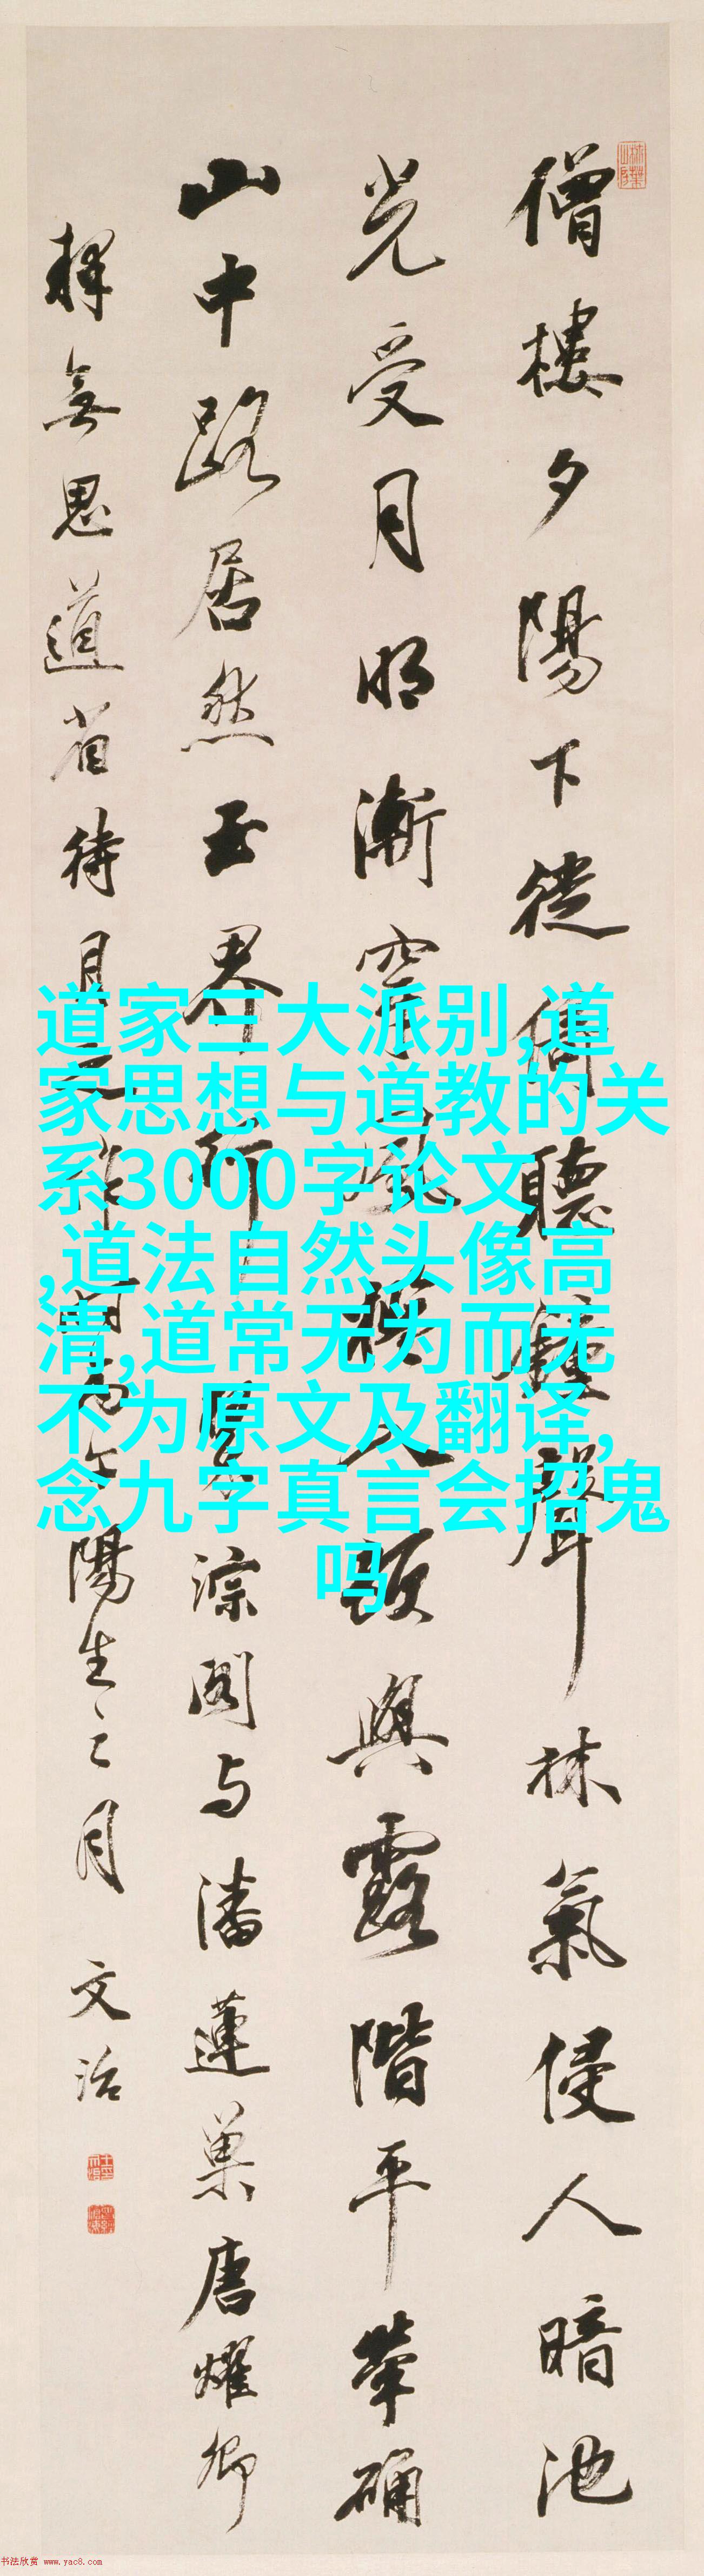 僧樓夕陽下徙倚聽鐘聲林氣侵人暗池
光受月明漸穿風模人頭與露階平葦硧
山中路居然玉界行
淙閣与潘蓮巢唐燿卿
拜無思道省待月之作
陽生之月 文治
道家三大派别,道
家思想与道教的关
系3000字论文
,道法自然头像高
清,道常无为而无
不为原文及翻译,
念九字真言会招鬼
吗
书法欣赏 www.yac8.com